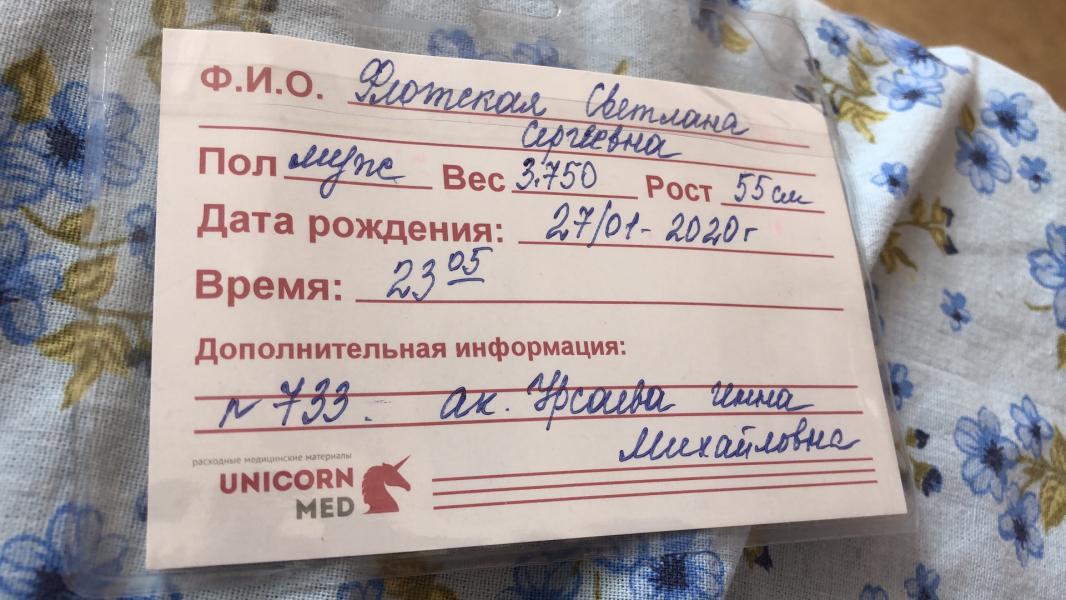 Ф.И.О. Флотская Светлана
Сергеевна
Пол муж Вес 3.750 Рост 55 см
Дата рождения: 27/01-2020г
Время: 23 05
Дополнительная информация:
N 733. ак. Урсаева Инна
Михайловна
расходные медицинские материалы
UNICORN
MED